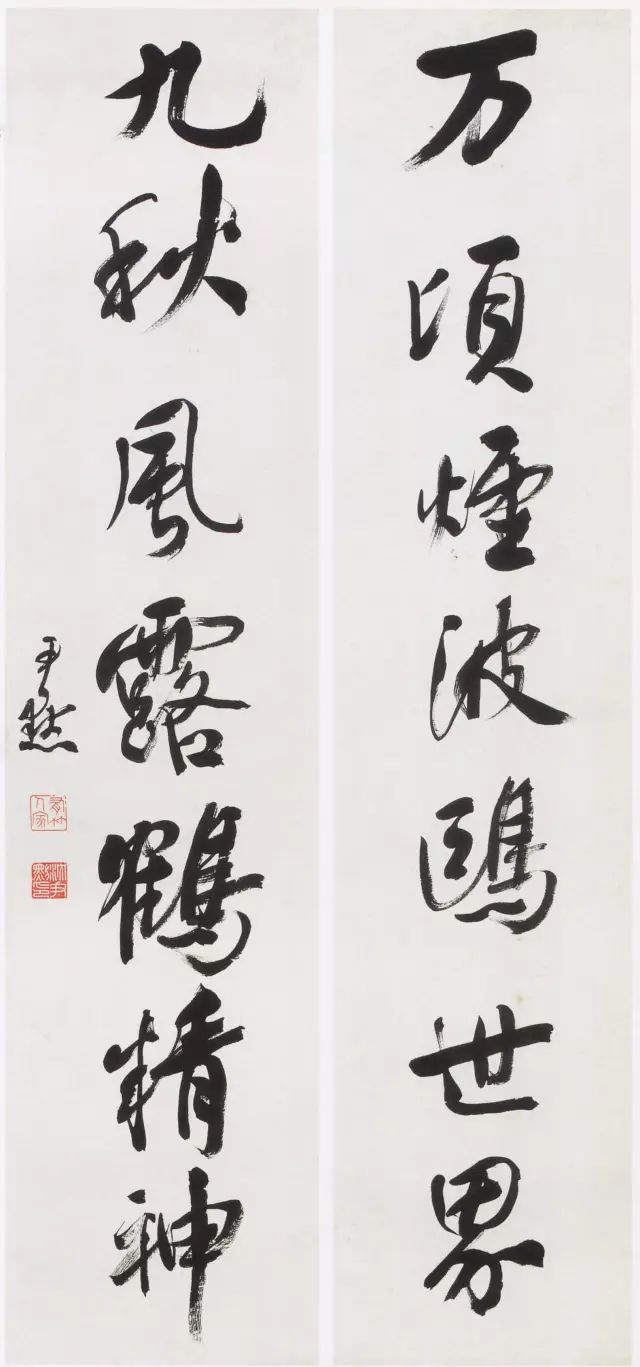 万頃煙波鷗世界
九秋風露鶴精神
尹默
沈尹默印